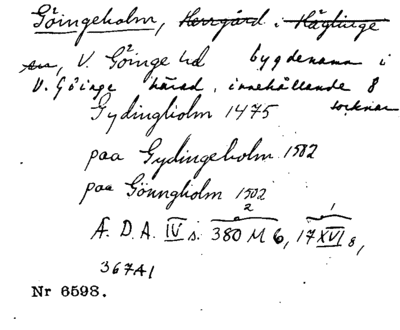 Göingeholm, Herrgård i Häglinge
sn, V. Göinge hd bygdenamn i
V. Göinge härad, innehållande 8
socknar
Gydingholm 1475
paa Gydingeholm 1502
paa Gönngholm 1502
Å. D. A. IV s. 380 M 6, 17 XVI 8,
2 1
367A1
Nr 6598.